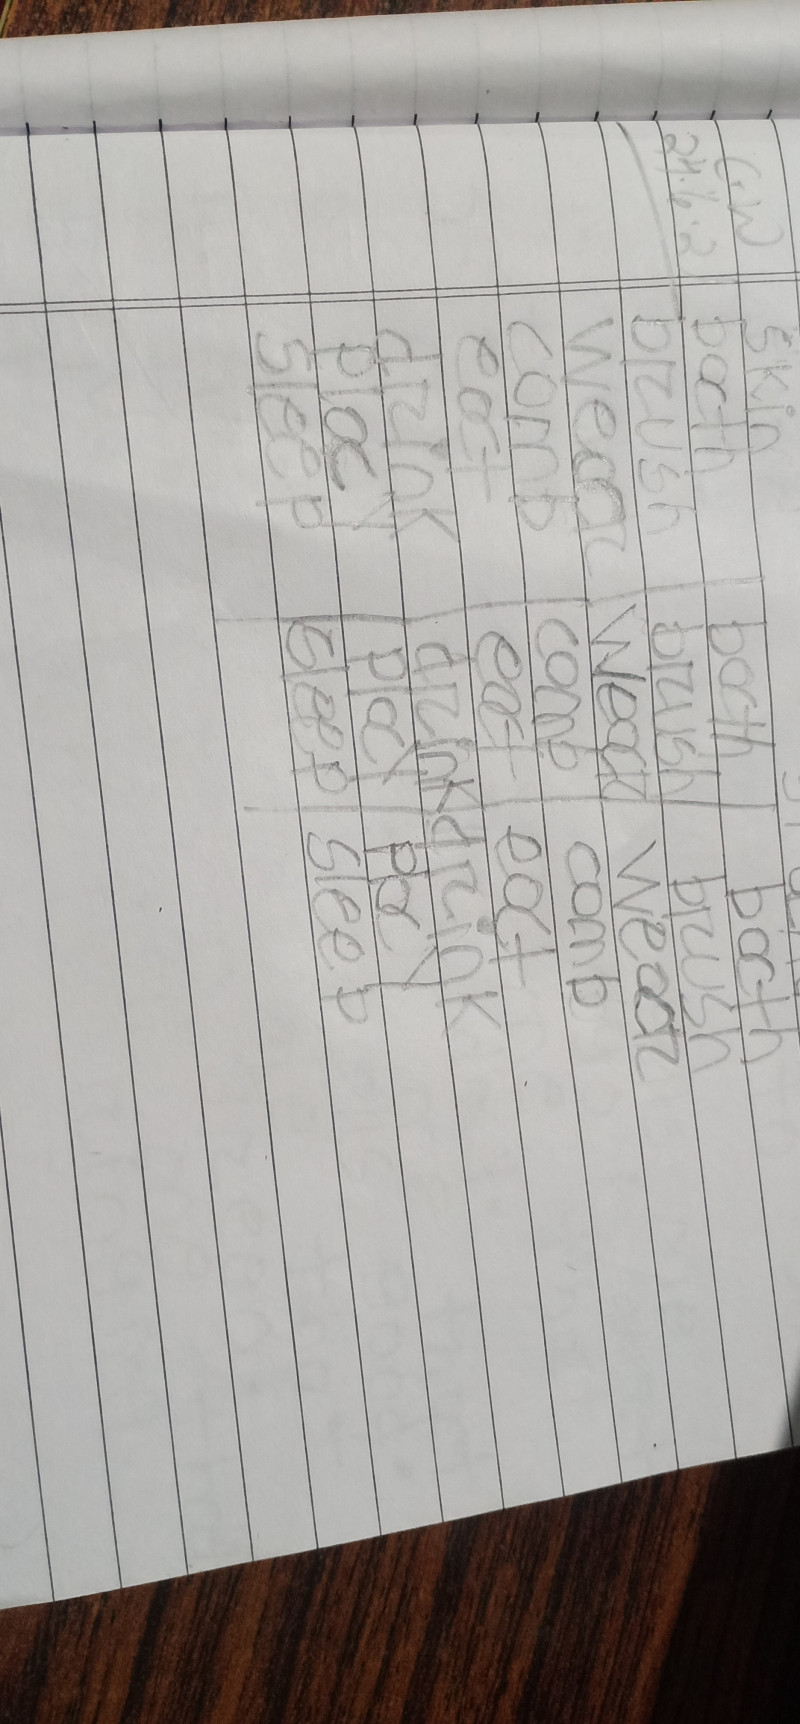 C.W
24.6.2
Skin
bath bath bath
brush brush brush
wear wear wear
comb comb comb
eat eat eat
drink drink drink
play play play
sleep sleep sleep